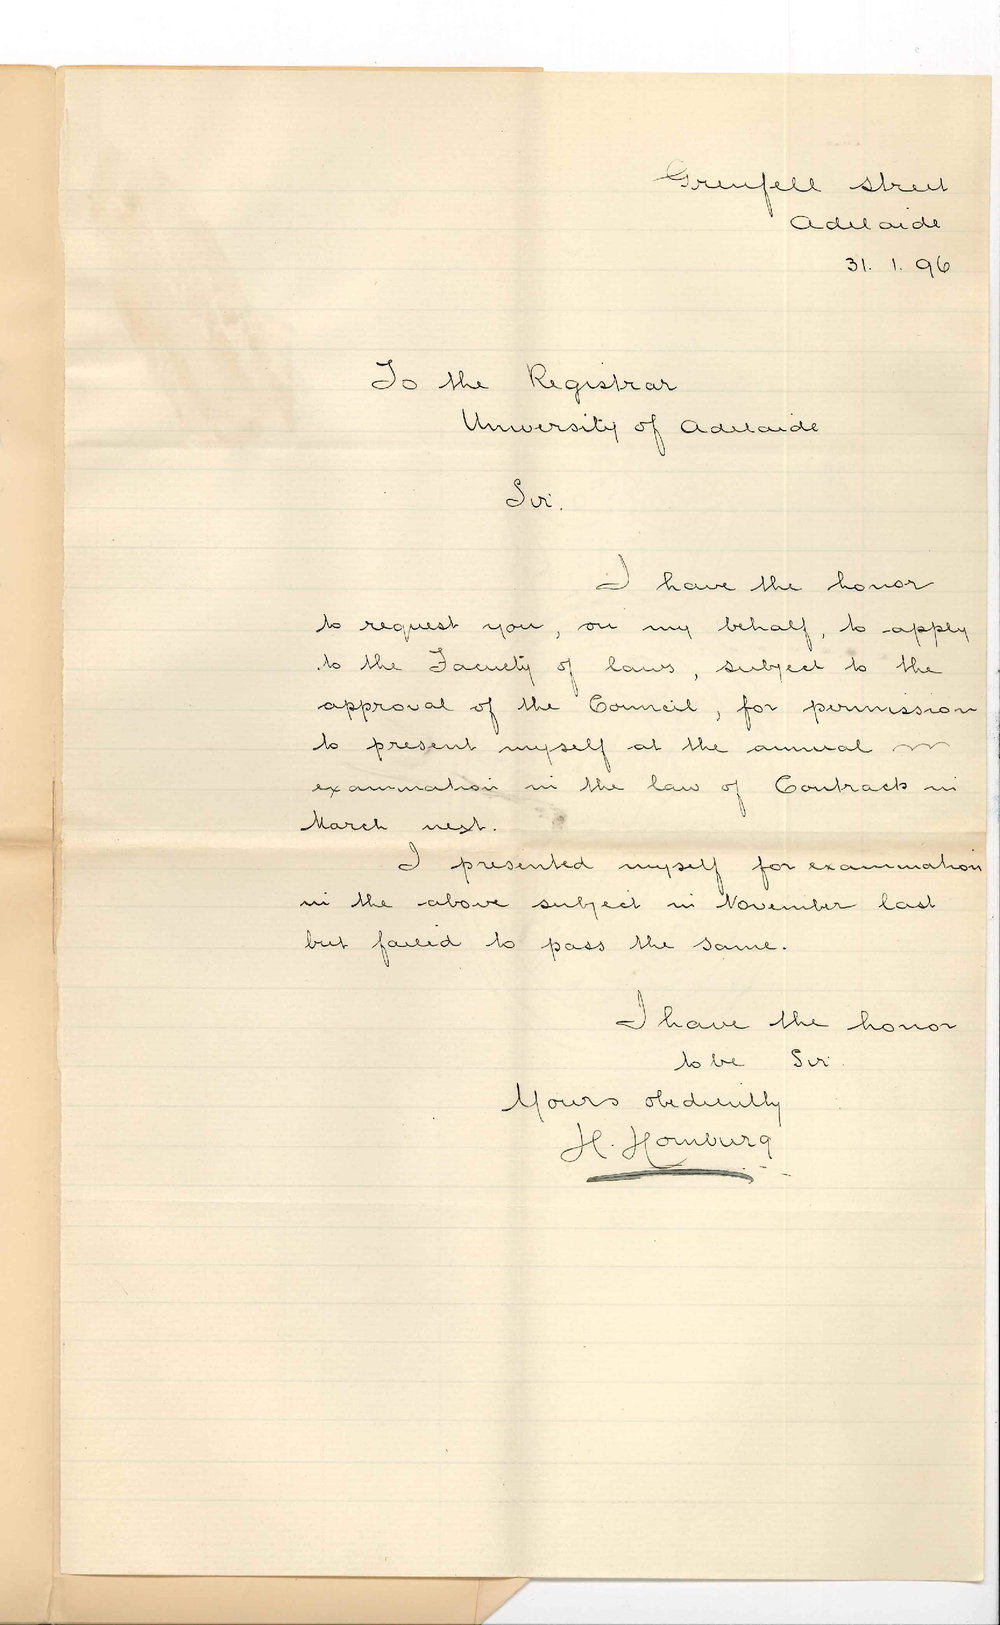 Grenfell Street
Adelaide
31. 1. 96
To the Registrar
University of Adelaide
Sir.
I have the honor
to request you, on my behalf, to apply
to the Faculty of laws, subject to the
approval of the Council, for permission
to present myself at the annual
examination in the law of Contracts in
March next.
I presented myself for examination
in the above subject in November last
but failed to pass the same.
I have the honor
to be Sir.
Yours obediently
H. Homburg